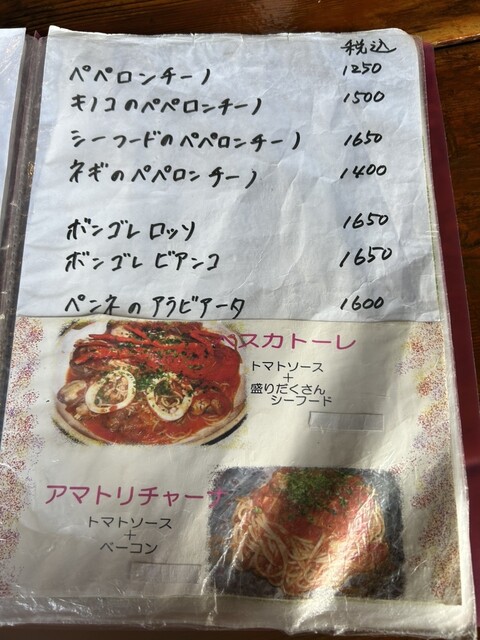 税込
ペペロンチーノ 1250
キノコのペペロンチーノ 1500
シーフードのペペロンチーノ 1650
ネギのペペロンチーノ 1400
ボンゴレ ロッソ 1650
ボンゴレ ビアンコ 1650
ペンネのアラビアータ 1600
スカトーレ
トマトソース
+
盛りだくさん
シーフード
アマトリチャーナ
トマトソース
+
ベーコン